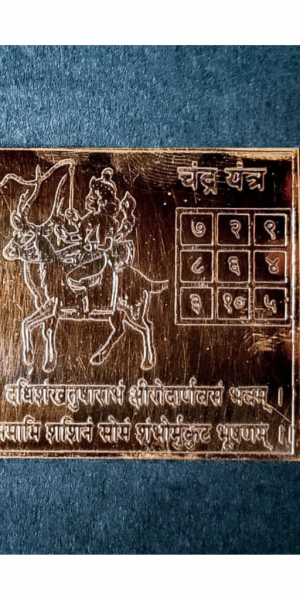 चंद्र यंत्र
७ २ ९
८ ६ ४
३ १० ५
दधिशंखतुषाराभं क्षीरोदार्णवसं भवम् ।
शशिनं सोमं शंभोर्मुकुट भूषणम् ।